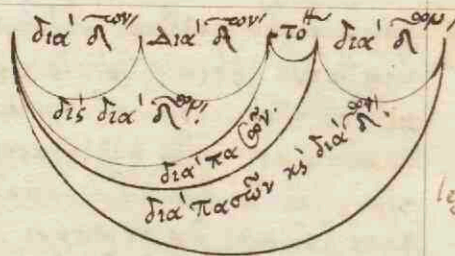 διὰ δ̅ων διὰ δ̅ων το διὰ δ̅ων
δὶς διὰ δ̅ων
διὰ πασῶν
διὰ πασῶν κὶ διὰ δ̅ων